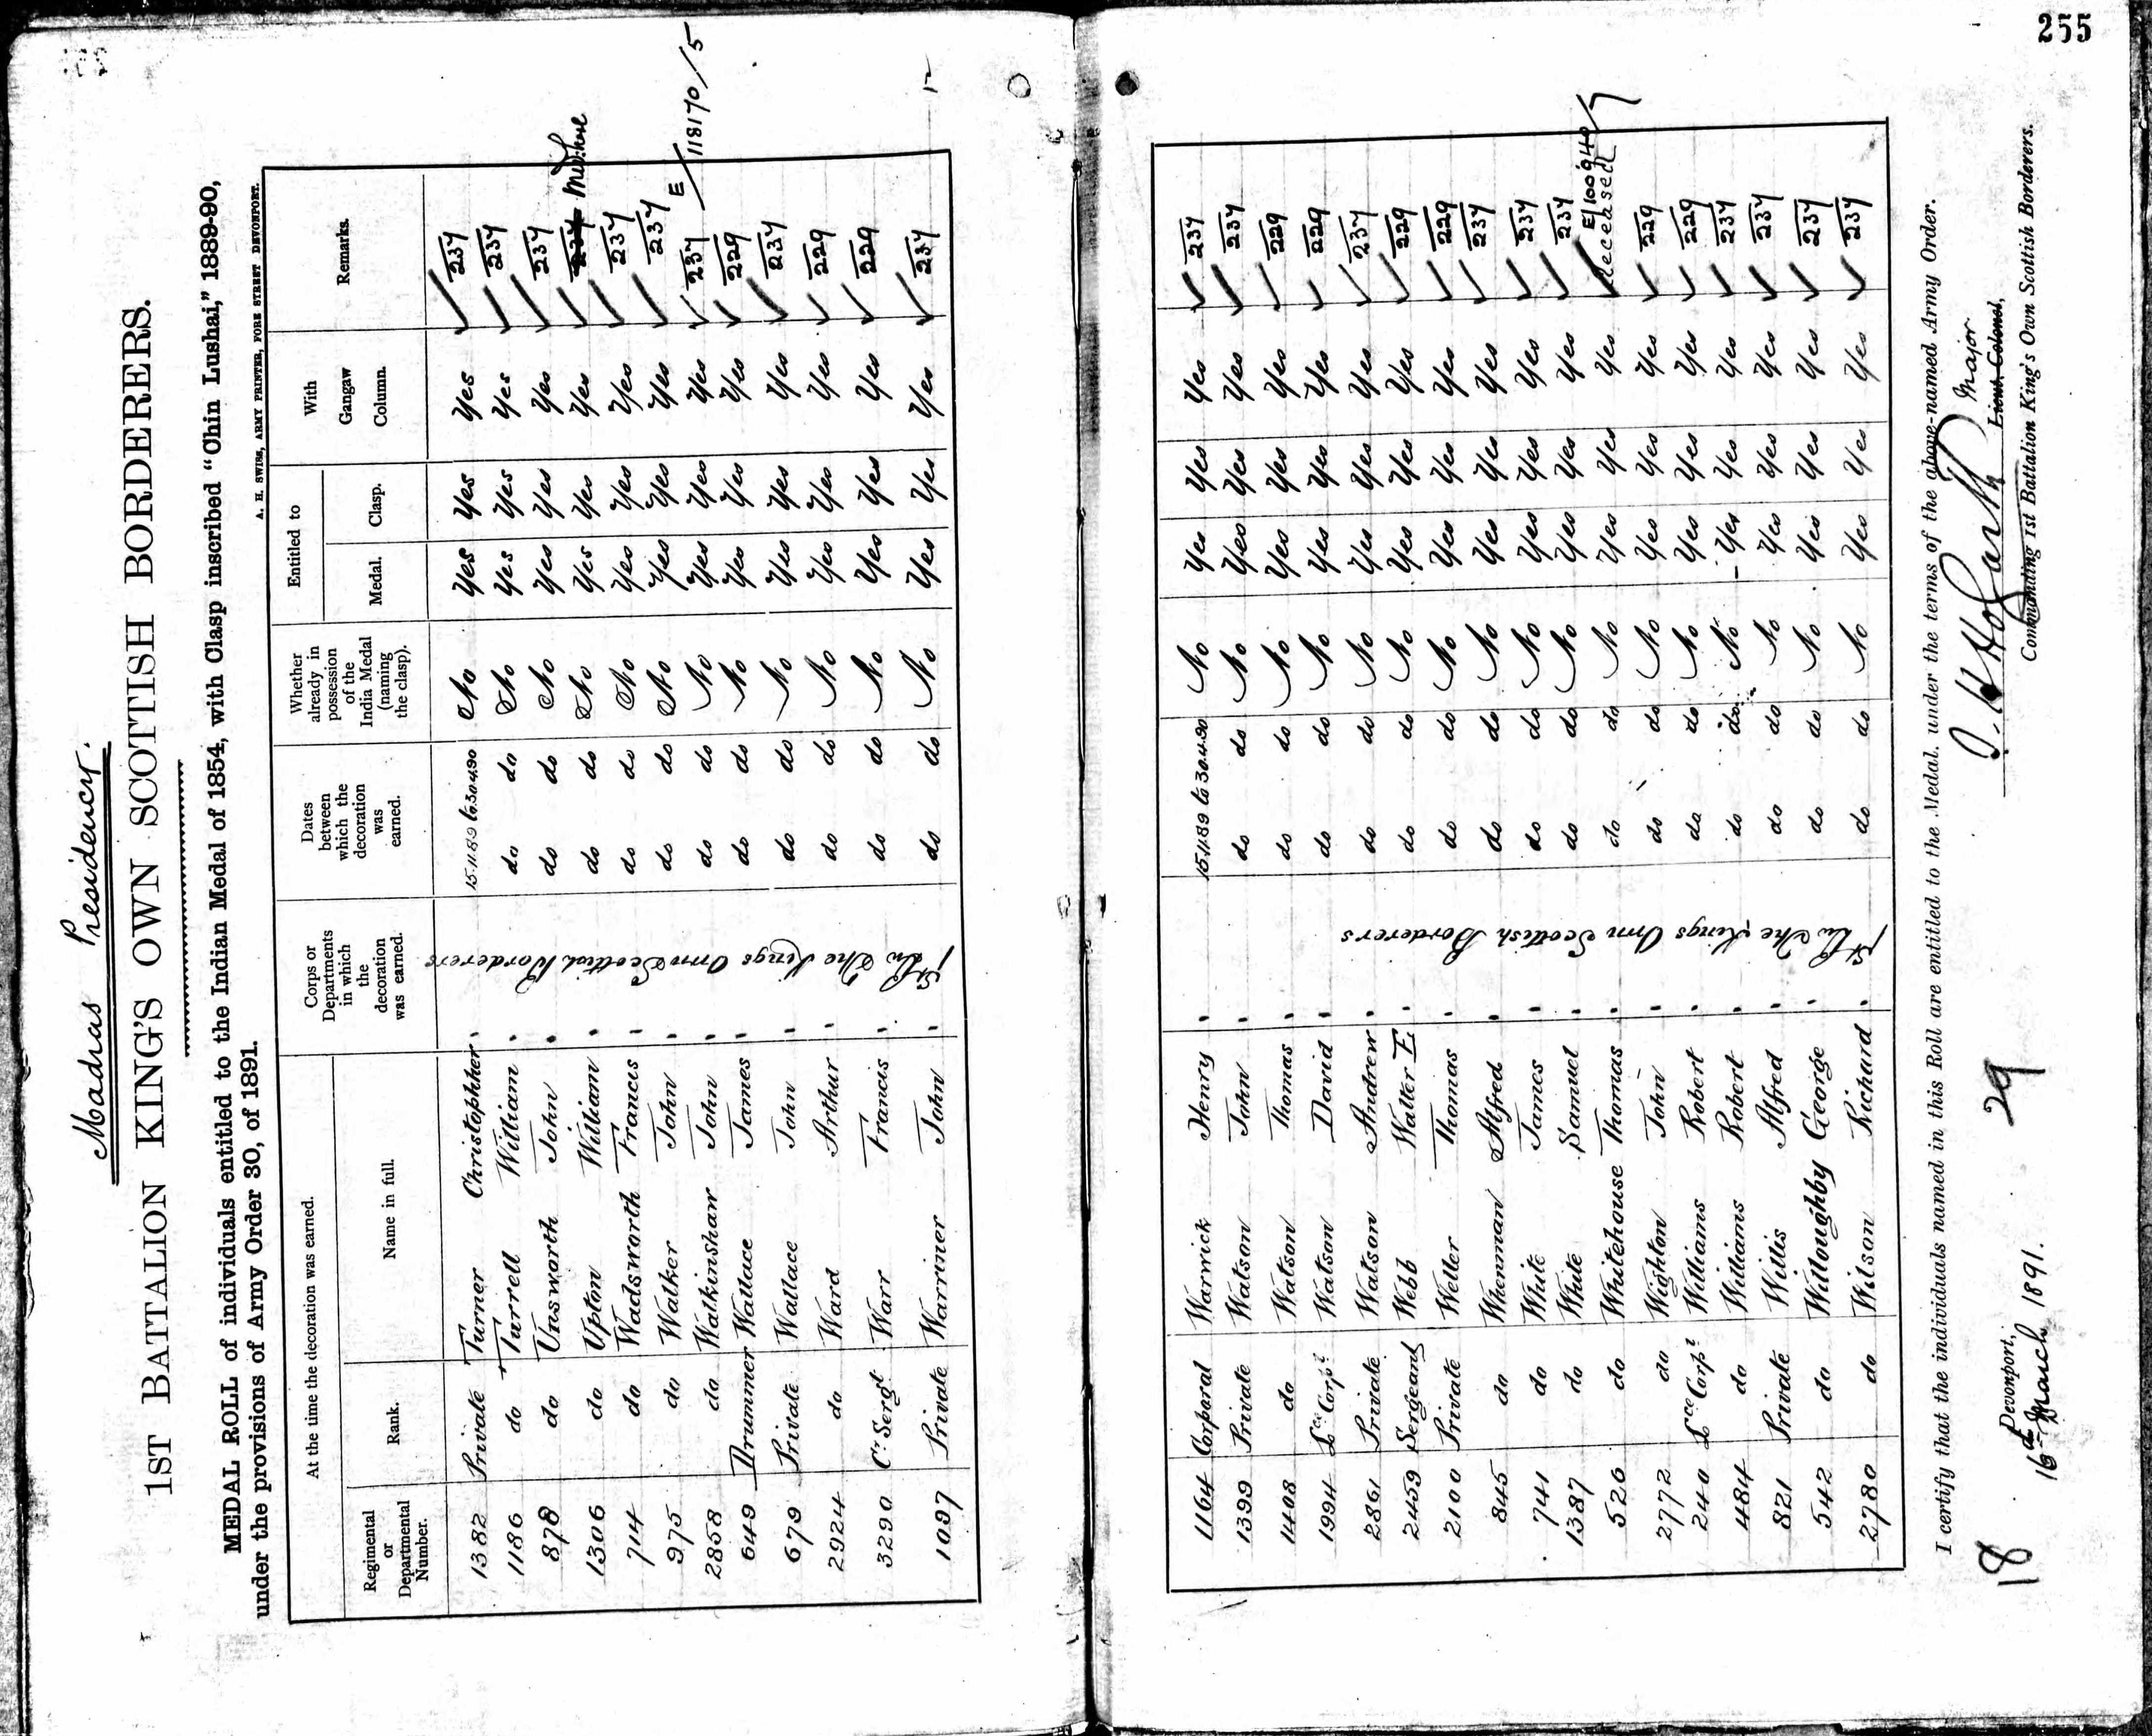 255
Madras Presidency.
1ST BATTALION KING'S OWN SCOTTISH BORDERERS.
MEDAL ROLL of individuals entitled to the Indian Medal of 1854, with Clasp inscribed "Chin Lushai," 1889-90,
under the provisions of Army Order 30, of 1891.
A. H. SWISS, ARMY PRINTER, FORE STREET DEVONPORT.
At the time the decoration was earned.
Regimental or Departmental Number.
Rank.
Name in full.
Corps or Departments in which the decoration was earned.
Dates between which the decoration was earned.
Whether already in possession of the India Medal (naming the clasp).
Entitled to
Medal.
Clasp.
With Gangaw Column.
Remarks.
1382 Private Turner Christopher " 15.11.89 to 30.4.90 No Yes Yes Yes 237
1186 do Turrell William " do do No Yes Yes Yes 237
878 do Unsworth John " do do No Yes Yes Yes 237
1306 do Upton William " do do No Yes Yes Yes 237
714 do Wadsworth Francis " do do No Yes Yes Yes 237
975 do Walker John " do do No Yes Yes Yes 237
2858 do Walkinshaw John " do do No Yes Yes Yes 237 E/118170/5
649 Drummer Wallace James " do do No Yes Yes Yes 229
679 Private Wallace John " do do No Yes Yes Yes 237
2924 do Ward Arthur " do do No Yes Yes Yes 229
3290 Cr Sergt Warr Francis " do do No Yes Yes Yes 229
1097 Private Warriner John " do do No Yes Yes Yes 237
1st Bn The Kings Own Scottish Borderers
1164 Corporal Warwick Henry " 15.11.89 to 30.4.90 No Yes Yes Yes 237
1399 Private Watson John " do do No Yes Yes Yes 237
1408 do Watson Thomas " do do No Yes Yes Yes 229
1994 Lce Corpl Watson David " do do No Yes Yes Yes 229
2861 Private Watson Andrew " do do No Yes Yes Yes 237
2459 Sergeant Webb Walter E. " do do No Yes Yes Yes 229
2100 Private Weller Thomas " do do No Yes Yes Yes 229
845 do Whenman Alfred " do do No Yes Yes Yes 237
741 do White James " do do No Yes Yes Yes 237
1387 do White Samuel " do do No Yes Yes Yes 237
526 do Whitehouse Thomas " do do No Yes Yes Yes deceased E/100940/7
2772 do Wighton John " do do No Yes Yes Yes 229
240 Lce Corpl Williams Robert " do do No Yes Yes Yes 229
484 do Williams Robert " do do No Yes Yes Yes 237
821 Private Willis Alfred " do do No Yes Yes Yes 237
542 do Willoughby George " do do No Yes Yes Yes 237
2780 do Wilson Richard " do do No Yes Yes Yes 237
1st Bn The Kings Own Scottish Borderers
I certify that the individuals named in this Roll are entitled to the Medal, under the terms of the above-named Army Order.
Major
Lieut. Colonel,
Commanding 1st Battalion King's Own Scottish Borderers.
Devonport,
16th March 1891.
18
29